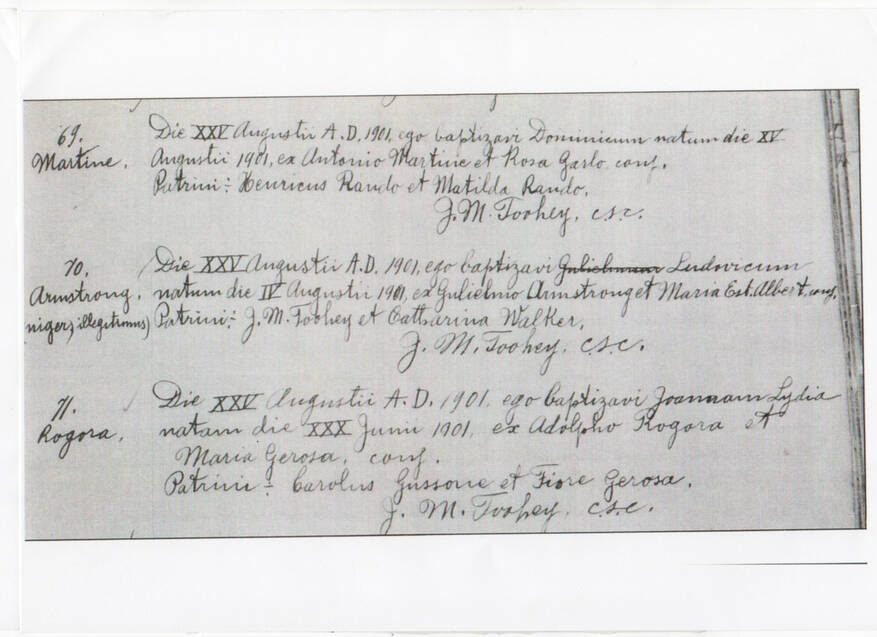 69.
Martine.
Die XXV Augustii A.D. 1901, ego baptizavi Dominicum natum die XV
Augustii 1901, ex Antonio Martine et Rosa Garlo, conj.
Patrini:- Henricus Rando et Matilda Rando.
J. M. Toohey, c.s.c.
70.
Armstrong.
niger, illegitimus)
Die XXV Augustii A.D. 1901, ego baptizavi Gulielmum Ludovicum
natum die IV Augustii 1901, ex Gulielmo Armstrong et Maria Est. Albert, conj.
Patrini:- J. M. Toohey et Catharina Walker.
J. M. Toohey, c.s.c.
71.
Rogora.
Die XXV Augustii A.D. 1901, ego baptizavi Joannam Lydia
natam die XXX Junii 1901, ex Adolpho Rogora et
Maria Gerosa, conj.
Patrini:- Carolus Gussone et Fiore Gerosa.
J. M. Toohey, c.s.c.